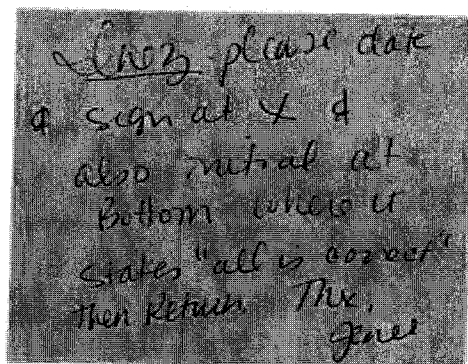 Inez please date
& sign at X &
also initial at
Bottom where it
states "all is correct"
Then Return. Thx,